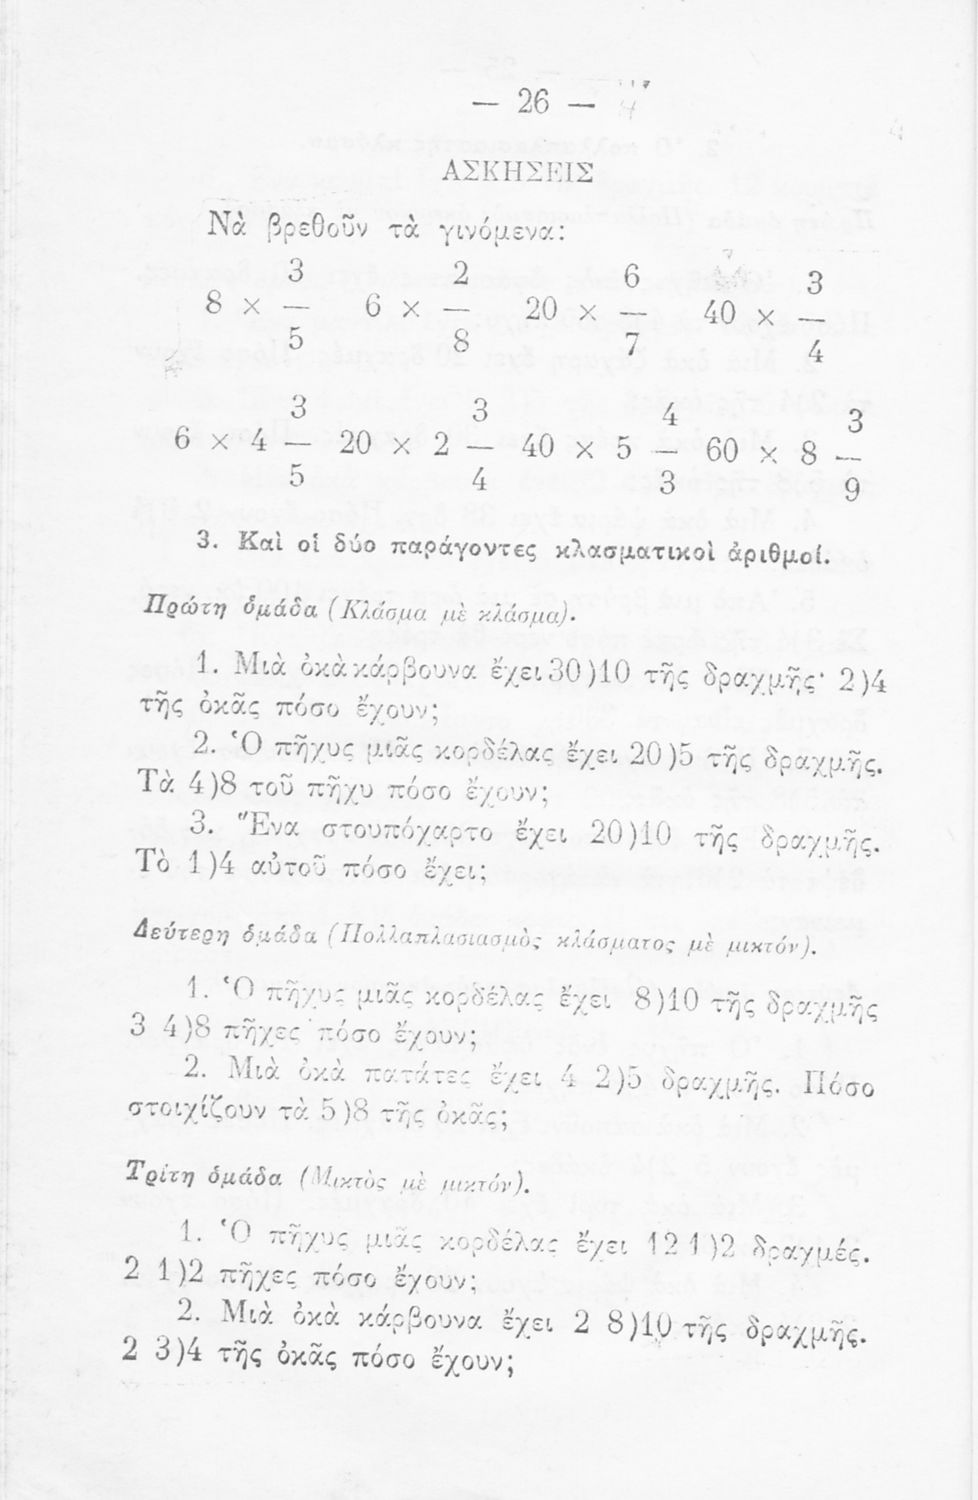 — 26 —
ΑΣΚΗΣΕΙΣ
Νὰ βρεθοῦν τὰ γινόμενα:
3 2 6 3
8 × — 6 × — 20 × — 40 × —
5 8 7 4
3 3 4 3
6 × 4 — 20 × 2 — 40 × 5 — 60 × 8 —
5 4 3 9
3. Καὶ οἱ δύο παράγοντες κλασματικοὶ ἀριθμοί.
Πρώτη ὁμάδα (Κλάσμα μὲ κλάσμα).
1. Μιὰ ὀκὰ κάρβουνα ἔχει 30)10 τῆς δραχμῆς· 2)4
τῆς ὀκᾶς πόσο ἔχουν;
2. Ὁ πῆχυς μιᾶς κορδέλας ἔχει 20)5 τῆς δραχμῆς.
Τὰ 4)8 τοῦ πῆχυ πόσο ἔχουν;
3. Ἕνα στουπόχαρτο ἔχει 20)10 τῆς δραχμῆς.
Τὸ 1)4 αὐτοῦ πόσο ἔχει;
Δεύτερη ὁμάδα (Πολλαπλασιασμὸς κλάσματος μὲ μικτόν).
1. Ὁ πῆχυς μιᾶς κορδέλας ἔχει 8)10 τῆς δραχμῆς
3 4)8 πῆχες πόσο ἔχουν;
2. Μιὰ ὀκὰ πατάτες ἔχει 4 2)5 δραχμῆς. Πόσο
στοιχίζουν τὰ 5)8 τῆς ὀκᾶς;
Τρίτη ὁμάδα (Μικτὸς μὲ μικτόν).
1. Ὁ πῆχυς μιᾶς κορδέλας ἔχει 12 1)2 δραχμές.
2 1)2 πῆχες πόσο ἔχουν;
2. Μιὰ ὀκὰ κάρβουνα ἔχει 2 8)10 τῆς δραχμῆς.
2 3)4 τῆς ὀκᾶς πόσο ἔχουν;